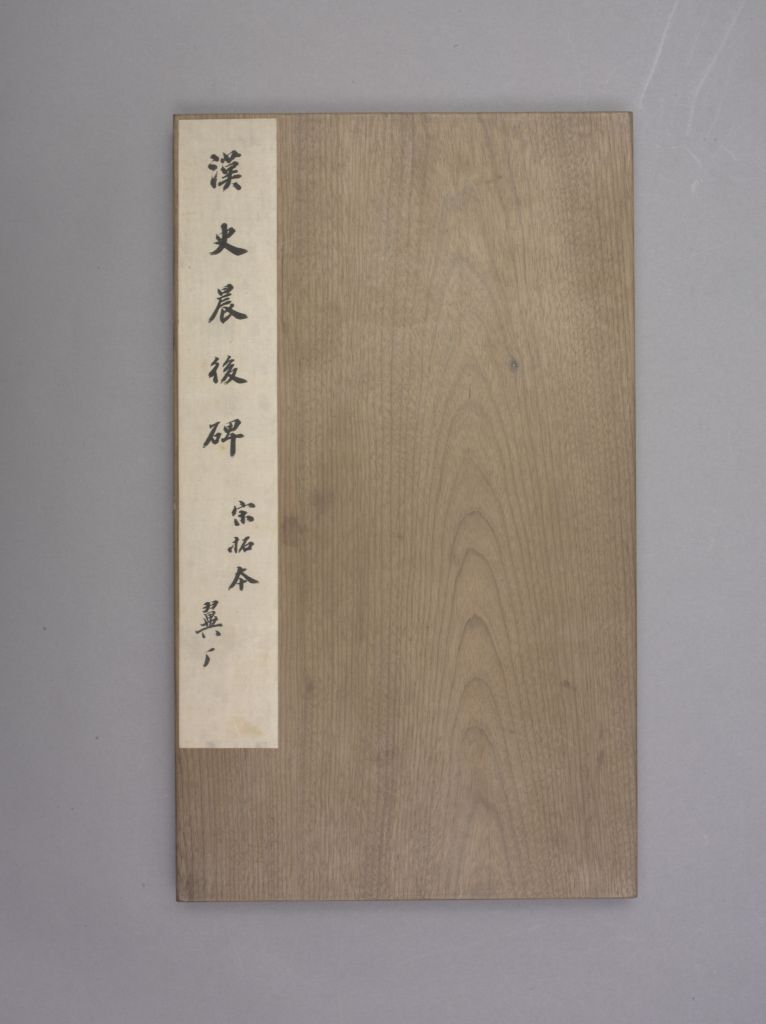 漢史晨後碑
宗拓本
翼厂